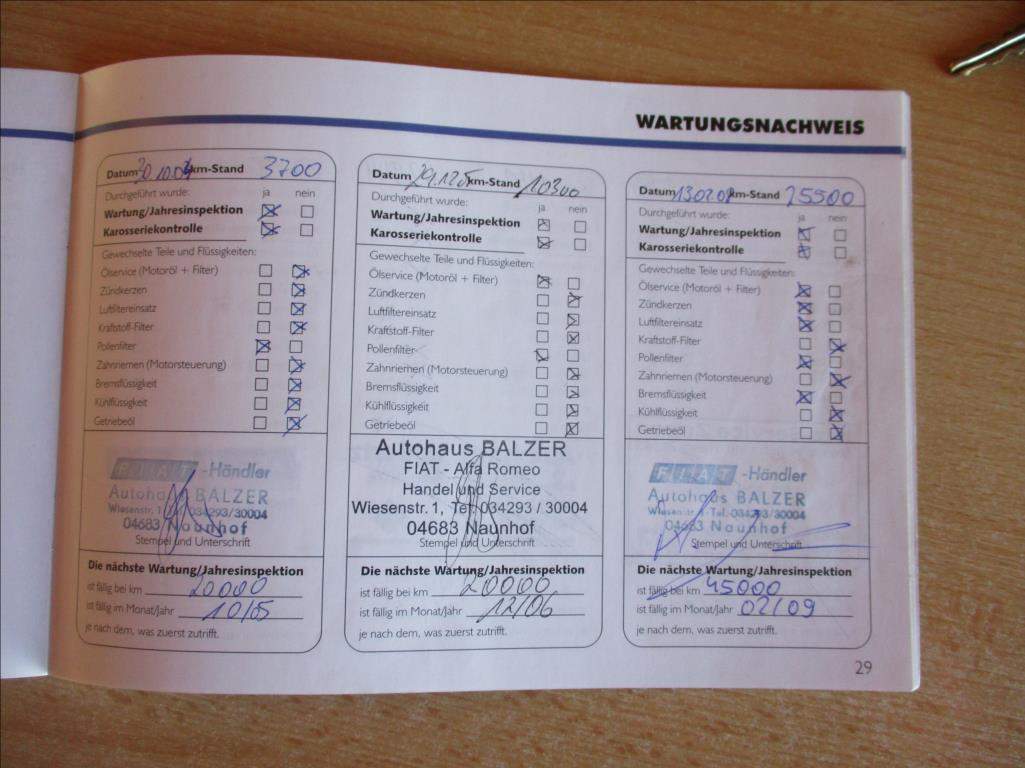 WARTUNGSNACHWEIS
Datum 30.10.04 km-Stand 3700
Durchgeführt wurde: ja nein
Wartung/Jahresinspektion
Karosseriekontrolle
Gewechselte Teile und Flüssigkeiten:
Ölservice (Motoröl + Filter)
Zündkerzen
Luftfiltereinsatz
Kraftstoff-Filter
Pollenfilter
Zahnriemen (Motorsteuerung)
Bremsflüssigkeit
Kühlflüssigkeit
Getriebeöl
FIAT -Händler
Autohaus BALZER
Wiesenstr. 1, 034293/30004
04683 Naunhof
Stempel und Unterschrift
Die nächste Wartung/Jahresinspektion
ist fällig bei km 20000
ist fällig im Monat/Jahr 10/05
je nach dem, was zuerst zutrifft.
Datum km-Stand 10300
Durchgeführt wurde: ja nein
Wartung/Jahresinspektion
Karosseriekontrolle
Gewechselte Teile und Flüssigkeiten:
Ölservice (Motoröl + Filter)
Zündkerzen
Luftfiltereinsatz
Kraftstoff-Filter
Pollenfilter
Zahnriemen (Motorsteuerung)
Bremsflüssigkeit
Kühlflüssigkeit
Getriebeöl
Autohaus BALZER
FIAT - Alfa Romeo
Handel und Service
Wiesenstr. 1, Tel. 034293 / 30004
04683 Naunhof
Stempel und Unterschrift
Die nächste Wartung/Jahresinspektion
ist fällig bei km 20000
ist fällig im Monat/Jahr 12/06
je nach dem, was zuerst zutrifft.
Datum km-Stand 25500
Durchgeführt wurde: ja nein
Wartung/Jahresinspektion
Karosseriekontrolle
Gewechselte Teile und Flüssigkeiten:
Ölservice (Motoröl + Filter)
Zündkerzen
Luftfiltereinsatz
Kraftstoff-Filter
Pollenfilter
Zahnriemen (Motorsteuerung)
Bremsflüssigkeit
Kühlflüssigkeit
Getriebeöl
FIAT -Händler
Autohaus BALZER
Wiesenstr. 1 Tel. 034293/30004
04683 Naunhof
Stempel und Unterschrift
Die nächste Wartung/Jahresinspektion
ist fällig bei km 45000
ist fällig im Monat/Jahr 02/09
je nach dem, was zuerst zutrifft.
29